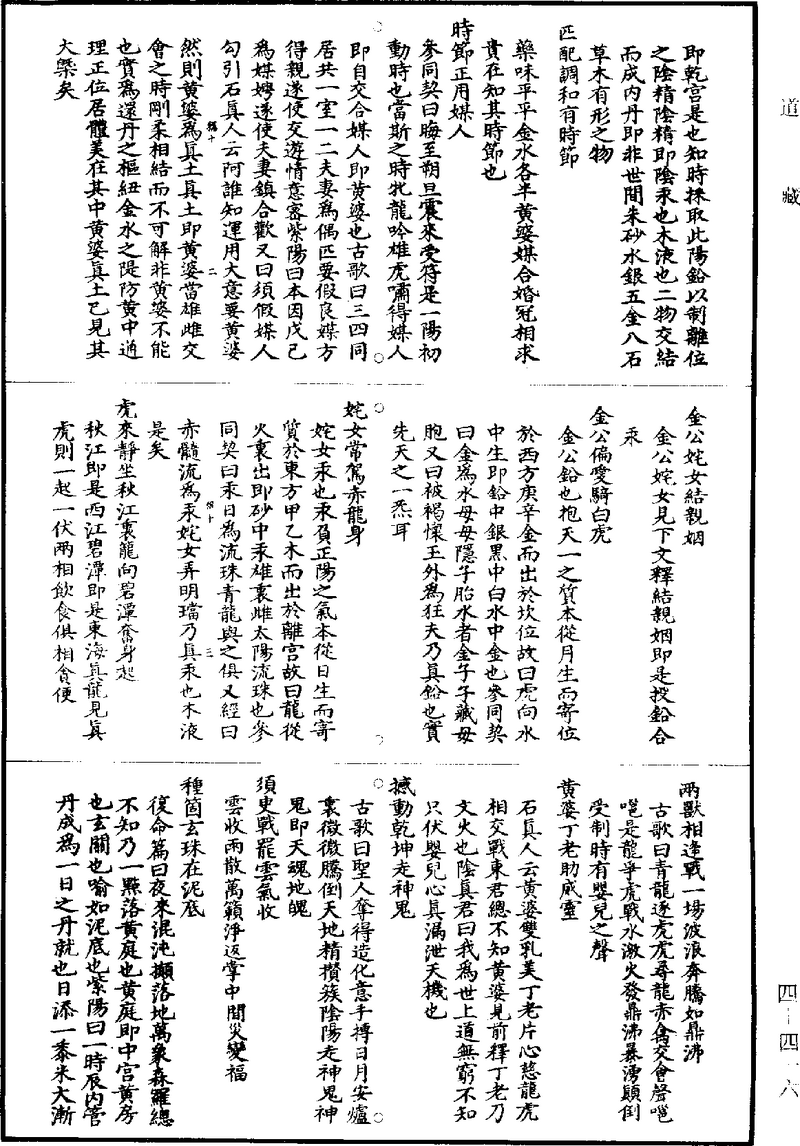 道藏
即乾宮是也知時採取此陽鉛以制離位
之陰精陰精即陰汞也木液也二物交結
而成内丹即非世間朱砂水銀五金八石
草木有形之物
匹配調和有時節
藥味平平金水各半黄婆媒合婚冠相求
貴在知其時節也
時節正用媒人
參同契曰晦至朔旦震來受符是一陽初
動時也當斯之時牝龍吟雄虎嘯得媒人
即自交合媒人即黄婆也古歌曰三四同
居共一室一二夫妻爲偶匹要假良媒方
得親遂使交遊情意密紫陽曰本因戊己
爲媒娉遂使夫妻鎮合歡又曰須假媒人
勾引石真人云阿誰知運用大意要黄婆
然則黄婆爲真土真土即黄婆當雄雌交
會之時剛柔相結而不可解非黄婆不能
也實爲還丹之樞紐金水之隄防黄中通
理正位居體美在其中黄婆真土已見其
大槩矣
金公姹女結親姻
金公姹女見下文釋結親姻即是投鉛合
汞
金公偏愛騎白虎
金公鉛也抱天一之質本從月生而寄位
於西方庚辛金而出於坎位故曰虎向水
中生即鉛中銀黒中白水中金也參同契
曰金爲水母母隱子胎水者金子子藏母
胞又曰被褐懷玉外爲狂夫乃真鉛也實
先天之一炁耳
姹女常駕赤龍身
姹女汞也汞負正陽之氣本從日生而寄
質於東方甲乙木而出於離宮故曰龍從
火裏出即砂中汞雄裏雌太陽流珠也參
同契曰汞日為流珠青龍與之俱又經曰
赤髓流爲汞姹女弄明璫乃真汞也木液
是矣
虎來靜坐秋江裏龍向碧潭奮身起
秋江即是西江碧潭即是東海真龍見真
虎則一起一伏兩相飲食俱相貪便
兩獸相逢戰一場波浪奔騰如鼎沸
古歌曰青龍逐虎虎尋龍赤禽交會聲嗈
嗈是龍爭虎戰水激火發鼎沸暴湧顛倒
受制時有嬰兒之聲
黄婆丁老助威靈
石真人云黄婆雙乳美丁老片心慈龍虎
相交戰東君總不知黄婆見前釋丁老乃
文火也陰真君曰我爲世上道無窮不知
只伏嬰兒心真漏泄天機也
撼動乾坤走神鬼
古歌曰聖人奪得造化意手搏日月安爐
裏微微騰倒天地精攢簇陰陽走神鬼神
鬼即天魂地魄
須臾戰罷雲氣收
雲收雨散萬籟淨返掌中間災變福
種箇玄珠在泥底
復命篇曰夜來混沌攧落地萬象森羅總
不知乃一點落黄庭也黄庭即中宮黄房
也玄關也喻如泥底也紫陽曰一時辰内管
丹成爲一日之丹就也日添一黍米大漸
稱十 二
稱十 三
四-四一六